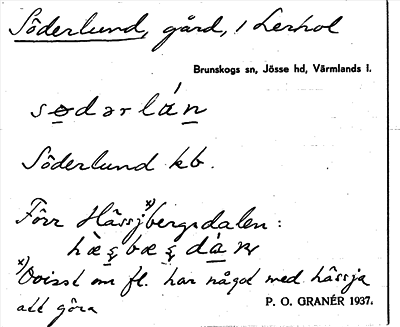 Söderlund, gård, i Lerhol
Brunskogs sn, Jösse hd, Värmlands l.
Söderlund kb.
Förr Hässjbergsdalen:
x) Ovisst om fl. har något med hässja
att göra
P. O. GRANÉR 1937.